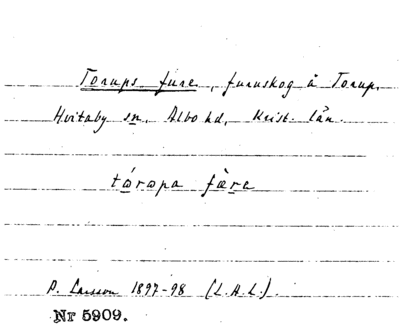 Torups fure, furuskog å Torup.
Hvitaby sn, Albo hd, Krist. län.
tóropa fère
P. Larsson 1897-98 (L.A.L.).
Nr 5909.